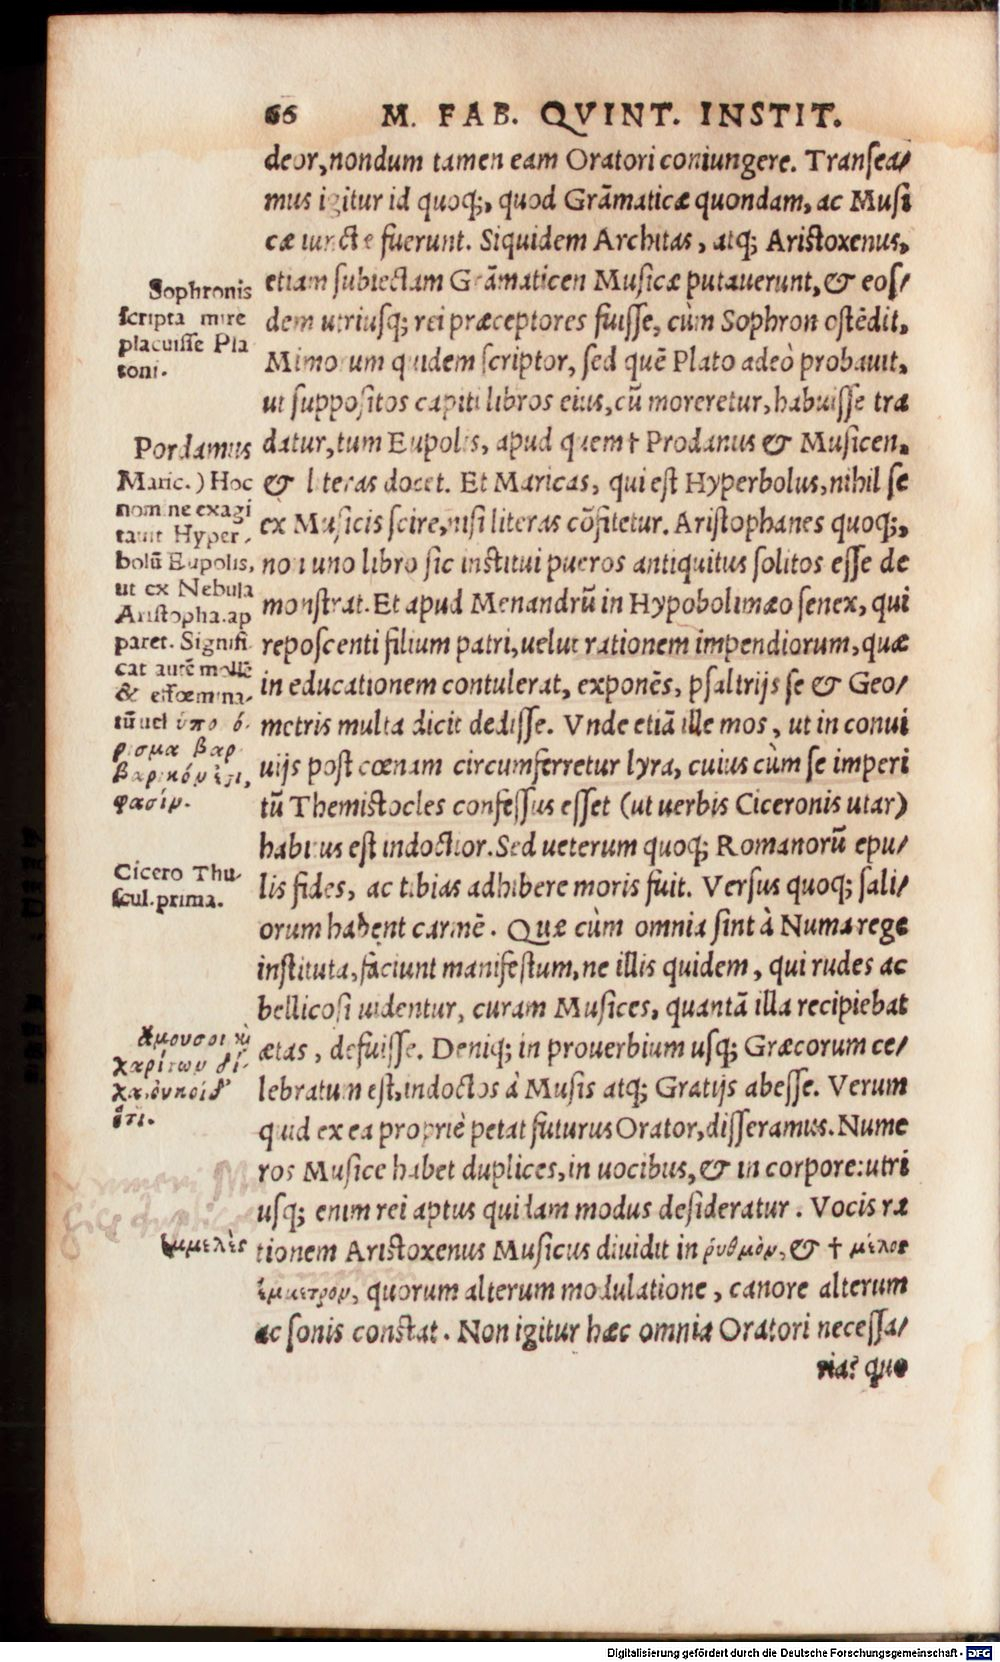 66 M. FAB. QVINT. INSTIT.
deor, nondum tamen eam Oratori coniungere. Transea/
mus igitur id quoq;, quod Grāmaticæ quondam, ac Musi
cæ iunctæ fuerunt. Siquidem Architas, atq; Aristoxenus,
etiam subiectam Grāmaticen Musicæ putauerunt, & eos/
dem utriusq; rei præceptores fuisse, cùm Sophron ostēdit,
Mimorum quidem scriptor, sed quē Plato adeò probauit,
ut suppositos capiti libros eius, cū moreretur, habuisse tra
datur, tum Eupolis, apud quem † Prodanus & Musicen,
& literas docet. Et Maricas, qui est Hyperbolus, nihil se
ex Musicis scire, nisi literas cōfitetur. Aristophanes quoq;,
non uno libro sic institui pueros antiquitus solitos esse de
monstrat. Et apud Menandrū in Hypobolimæo senex, qui
reposcenti filium patri, uelut rationem impendiorum, quæ
in educationem contulerat, exponēs, psaltrijs se & Geo/
metris multa dicit dedisse. Vnde etiā ille mos, ut in conui
uijs post cœnam circumferretur lyra, cuius cùm se imperi
tū Themistocles confessus esset (ut uerbis Ciceronis utar)
habitus est indoctior. Sed ueterum quoq; Romanorū epu/
lis fides, ac tibias adhibere moris fuit. Versus quoq; sali/
orum habent carmē. Quæ cùm omnia sint à Numa rege
instituta, faciunt manifestum, ne illis quidem, qui rudes ac
bellicosi uidentur, curam Musices, quantā illa recipiebat
ætas, defuisse. Deniq; in prouerbium usq; Græcorum ce/
lebratum est, indoctos à Musis atq; Gratijs abesse. Verum
quid ex ea propriè petat futurus Orator, disseramus. Nume
ros Musice habet duplices, in uocibus, & in corpore: utri
usq; enim rei aptus quidam modus desideratur. Vocis ra
tionem Aristoxenus Musicus diuidit in ῥυθμὸν, & † μέλος
ἔμμετρον, quorum alterum modulatione, canore alterum
ac sonis constat. Non igitur hæc omnia Oratori necessa/
ria? quo
Sophronis
scripta mire
placuisse Pla
toni.
Pordamus
Maric.) Hoc
nomine exagi
tauit Hyper-
bolū Eupolis,
ut ex Nebula
Aristopha. ap
paret. Signifi
cat autē mollē
& effœmina-
tū uel ὑπο ό-
ρισμα βαρ
βαρικόν ἐςι,
φασίν.
Cicero Thu-
scul. prima.
ἄμουσοι κὴ
χαρίτων δί-
ἐμμελὲς
Numeri Mu
sices duplices
Digitalisierung gefördert durch die Deutsche Forschungsgemeinschaft - DFG